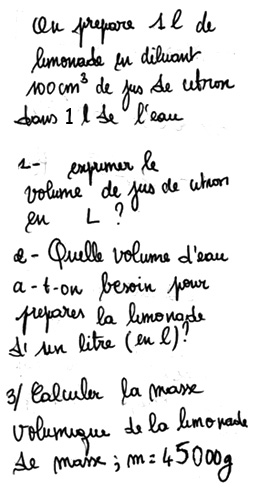 On prepare 1 l de
limonade en diluant
100 cm³ de jus de citron
dans 1 l de l'eau
1- exprimer le
volume de jus de citron
en L ?
2- Quelle volume d'eau
a-t-on besoin pour
prepares la limonade
d'un litre (en l)?
3/ Calculer la masse
volumique de la limonade
de masse ; m = 45000g